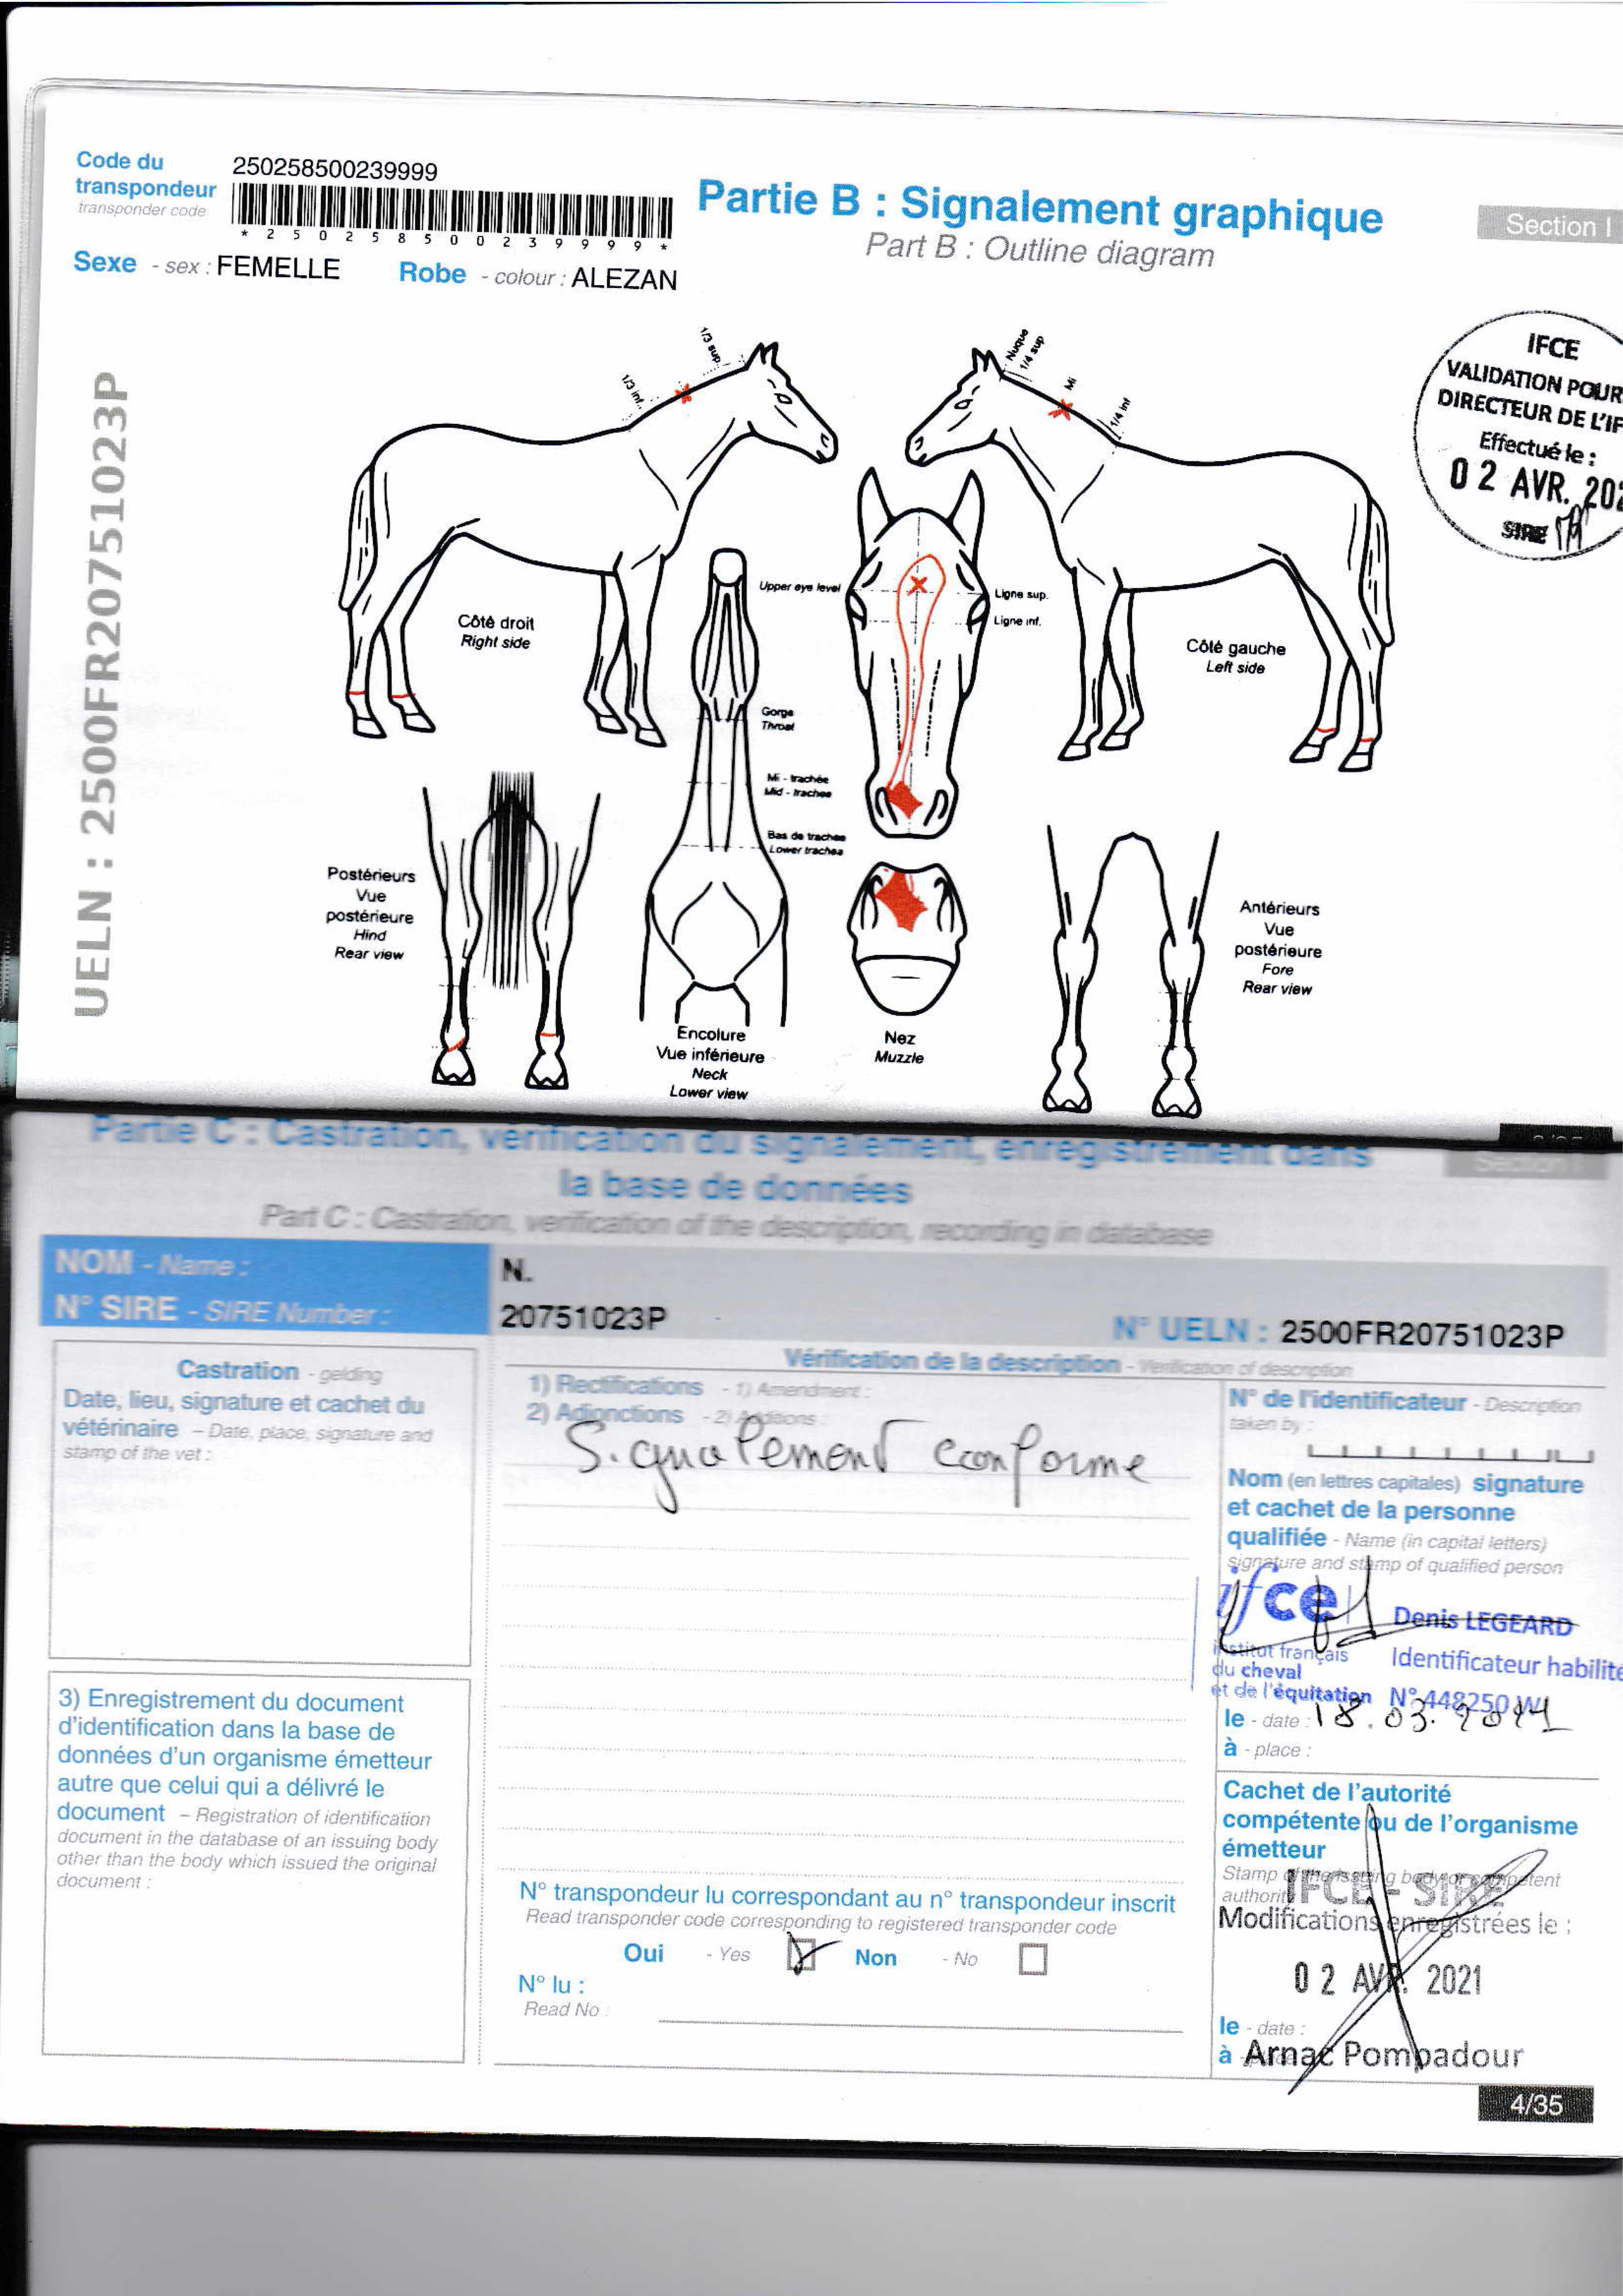 Code du
transpondeur
transponder code
250258500239999
* 2 5 0 2 5 8 5 0 0 2 3 9 9 9 9 *
Sexe - sex : FEMELLE
Robe - colour : ALEZAN
Partie B : Signalement graphique
Part B : Outline diagram
Section I
IFCE
VALIDATION POUR
DIRECTEUR DE L'IF
Effectué le :
0 2 AVR. 202
SIRE
UELN : 2500FR20751023P
1/3 sup.
1/3 inf.
Nuque
1/4 sup
Mi
1/4 inf
Côté droit
Right side
Upper eye level
Ligne sup.
Ligne inf.
Côté gauche
Left side
Gorge
Throat
Mi - trachée
Mid - trachea
Bas de trachée
Lower trachea
Postérieurs
Vue
postérieure
Hind
Rear view
Encolure
Vue inférieure
Neck
Lower view
Nez
Muzzle
Antérieurs
Vue
postérieure
Fore
Rear view
Partie C : Castration, vérification du signalement, enregistrement dans
la base de données
Part C : Castration, verification of the description, recording in database
Section I
NOM - Name :
N.
N° SIRE - SIRE Number :
20751023P
N° UELN : 2500FR20751023P
Castration - gelding
Date, lieu, signature et cachet du
vétérinaire - Date, place, signature and
stamp of the vet :
Vérification de la description - Verification of description
1) Rectifications - 1) Amendment :
2) Adjonctions - 2) Additions :
Signalement conforme
N° de l'identificateur - Description
taken by :
Nom (en lettres capitales) signature
et cachet de la personne
qualifiée - Name (in capital letters)
signature and stamp of qualified person
ifce
Denis LEGEARD
institut français
du cheval
et de l'équitation
Identificateur habilité
N° 448250 W1
le - date : 18.03.2021
à - place :
3) Enregistrement du document
d'identification dans la base de
données d'un organisme émetteur
autre que celui qui a délivré le
document - Registration of identification
document in the database of an issuing body
other than the body which issued the original
document :
N° transpondeur lu correspondant au n° transpondeur inscrit
Read transponder code corresponding to registered transponder code
Oui - Yes
Non - No
N° lu :
Read No :
Cachet de l'autorité
compétente ou de l'organisme
émetteur
Stamp of the issuing body or competent
authority
IFCE - SIRE
Modifications enregistrées le :
0 2 AVR. 2021
le - date :
à Arnac Pompadour
4/35